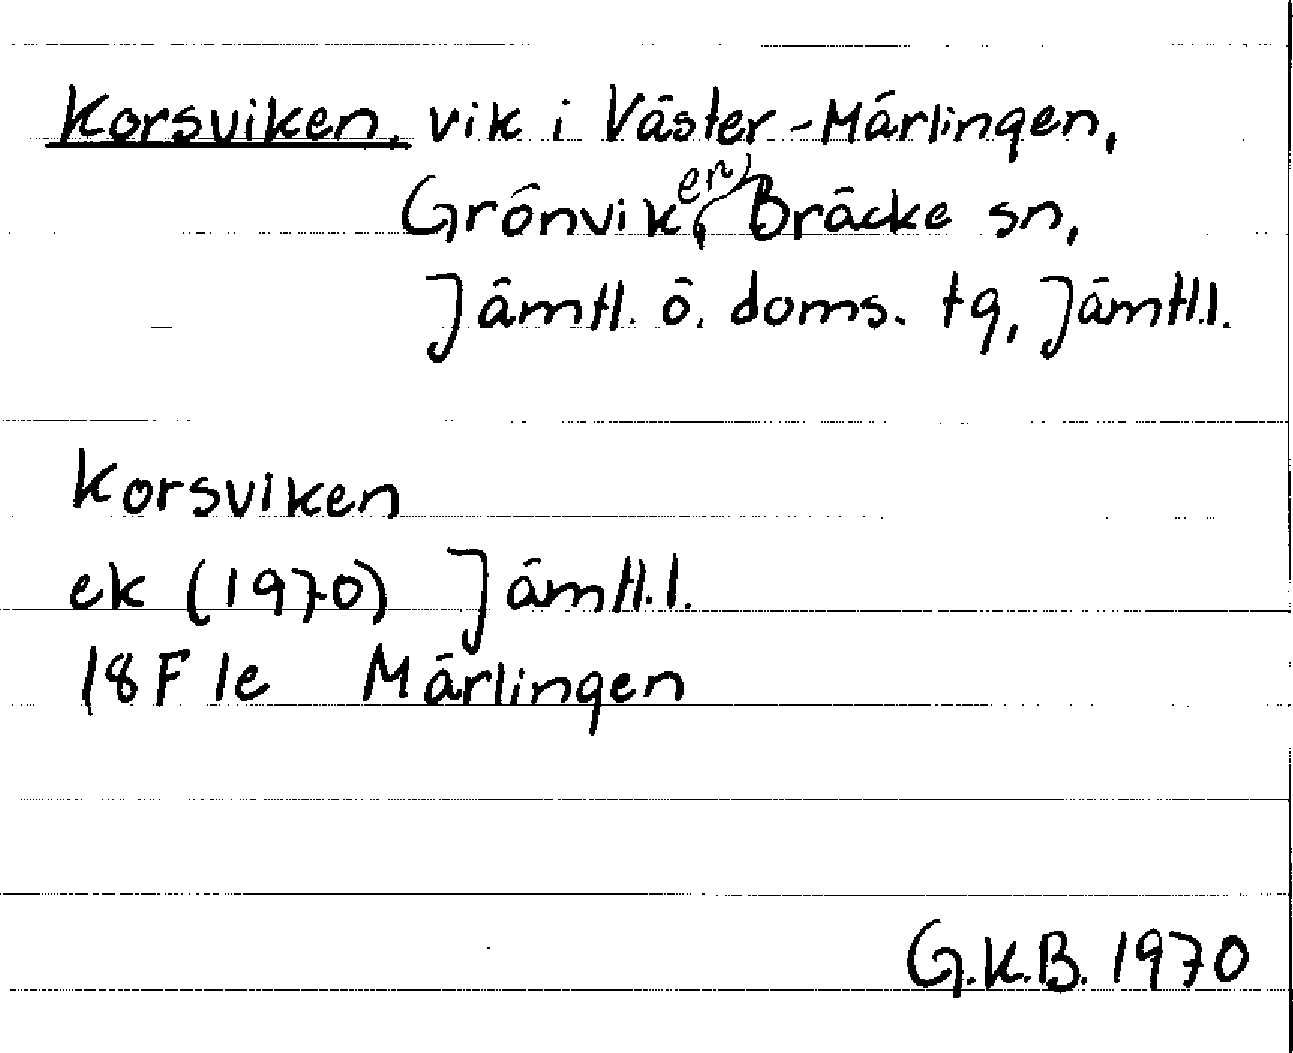 Korsviken, vik i Väster-Märlingen,
Grönviken, Bräcke sn,
Jämtl. ö. doms. tg, Jämtl.l.
Korsviken
ek (1970) Jämtl.l.
18F 1e Märlingen
G.K.B. 1970